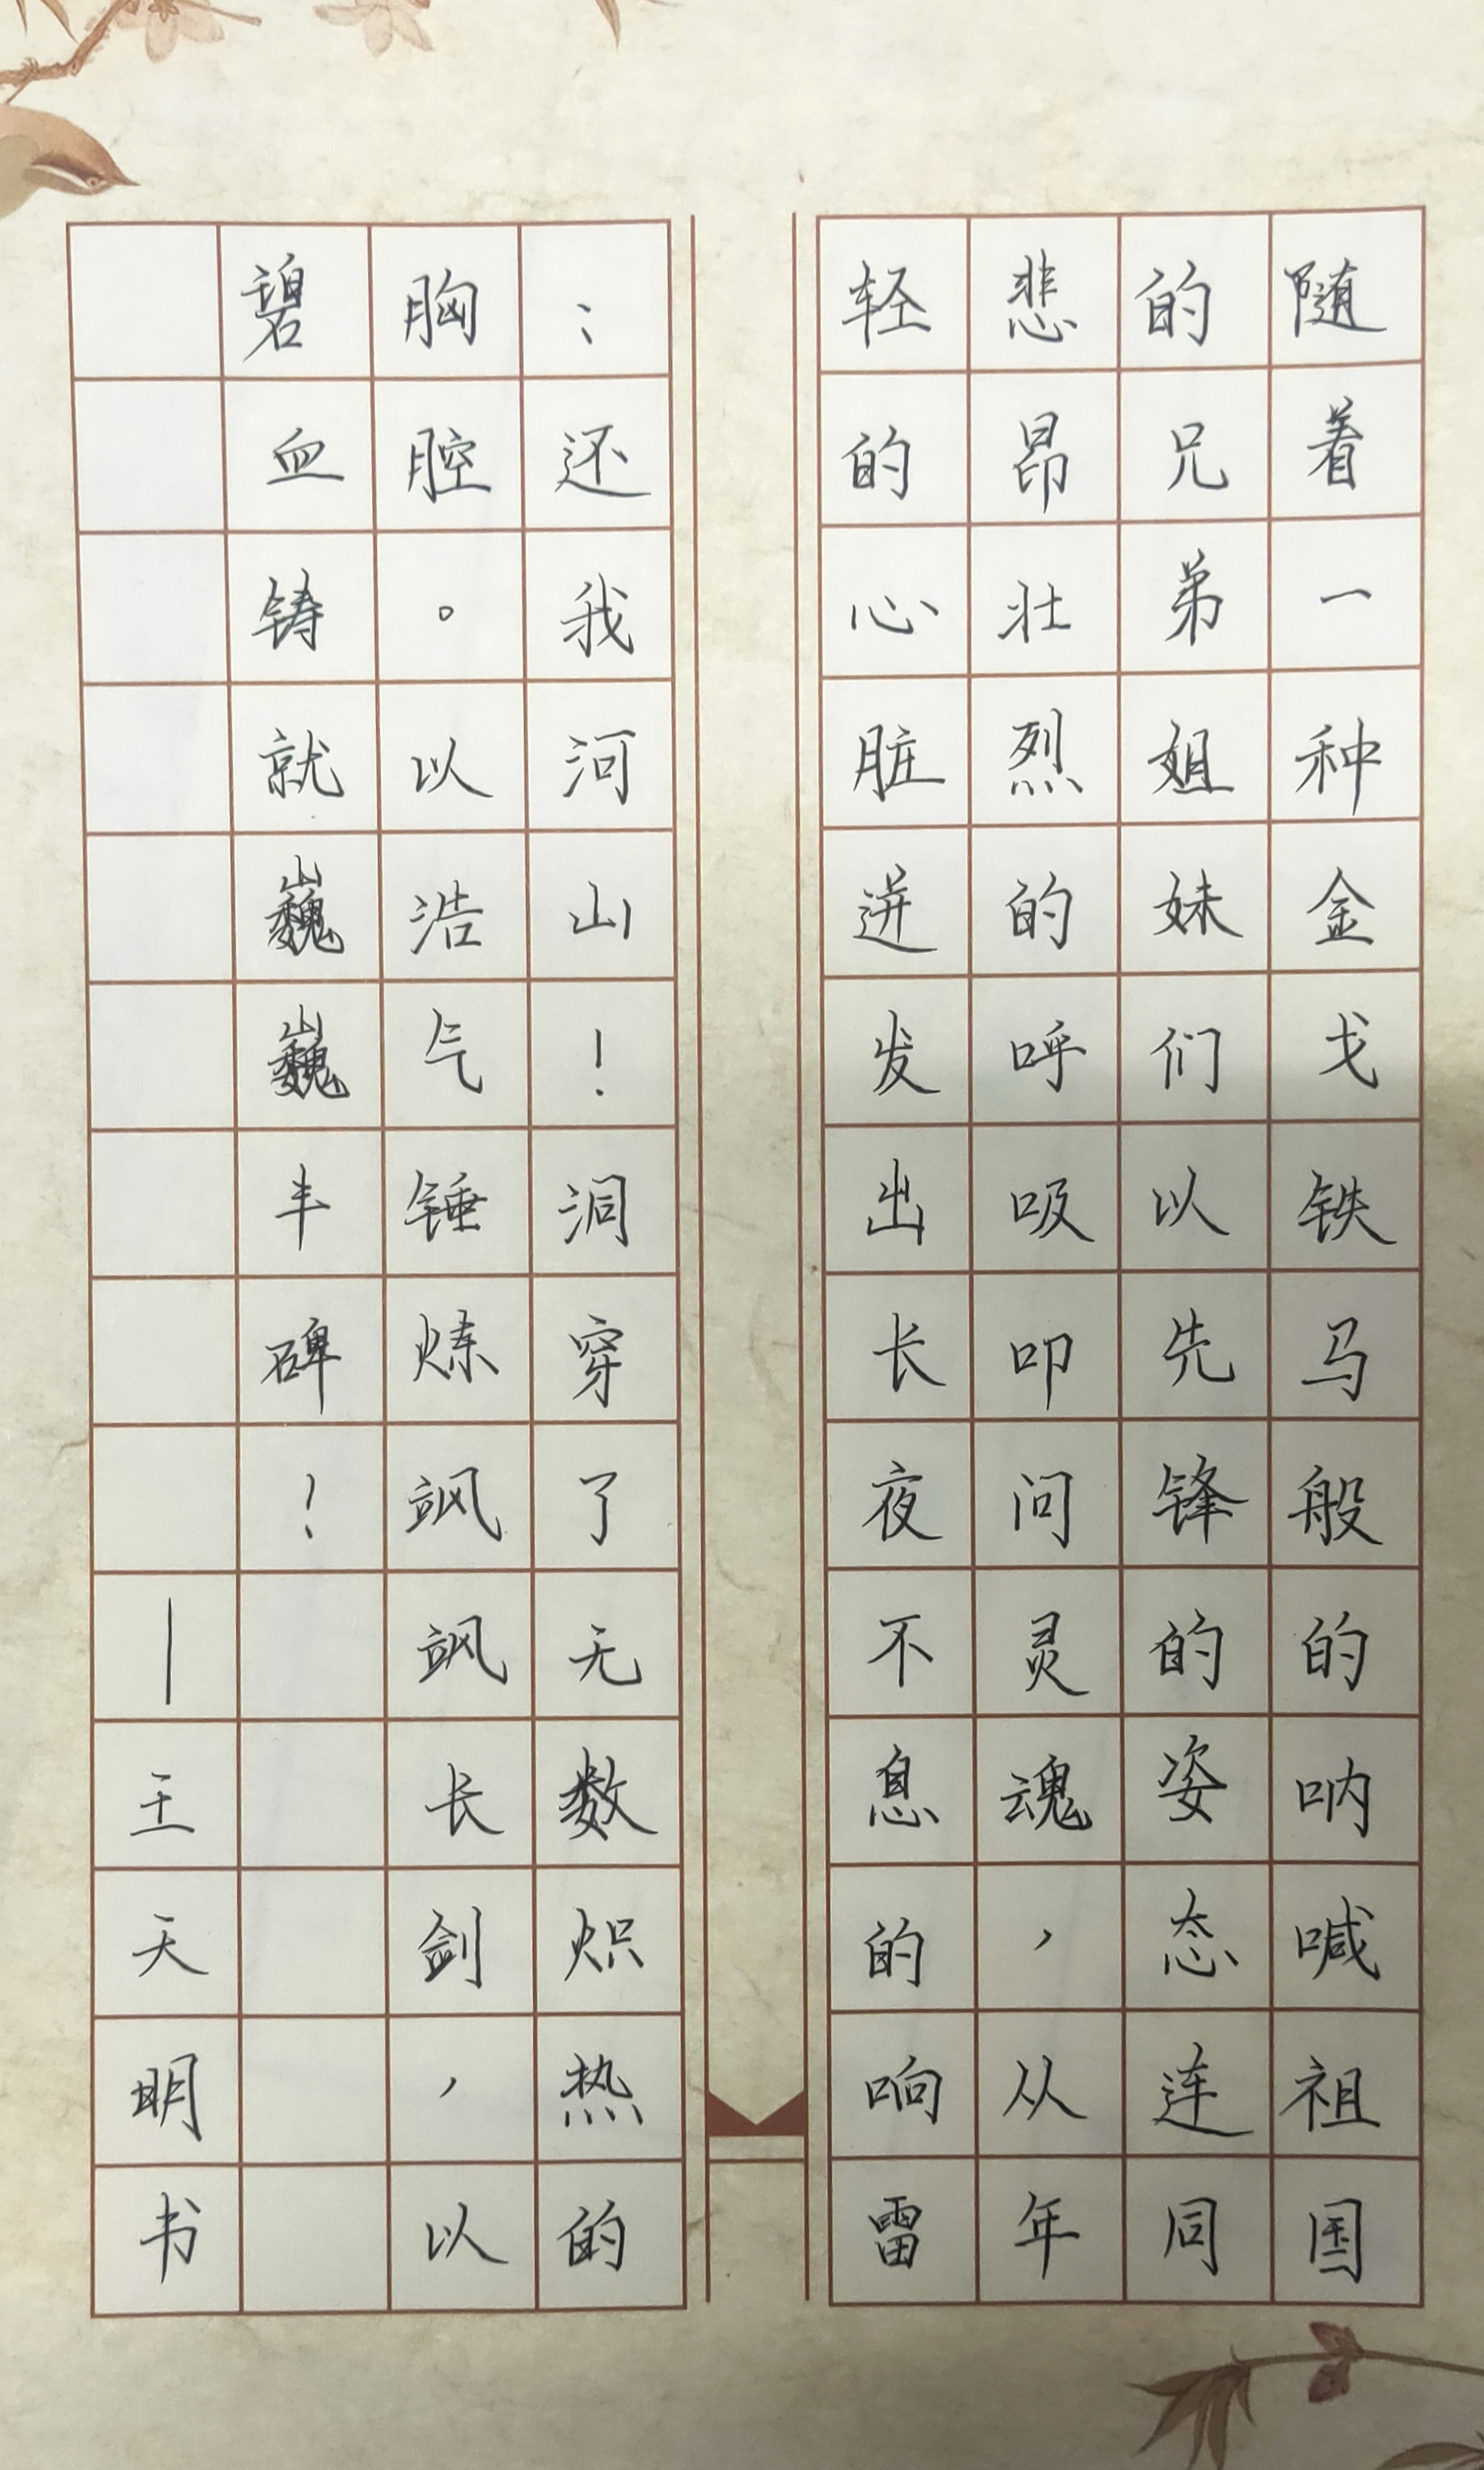 随着一种金戈铁马般的呐喊祖国
的兄弟姐妹们以先锋的姿态连同
悲昂壮烈的呼吸叩问灵魂，从年
轻的心脏迸发出长夜不息的响雷
：还我河山！洞穿了无数炽热的
胸腔。以浩气锤炼飒飒长剑，以
碧血铸就巍巍丰碑！
—王天明书